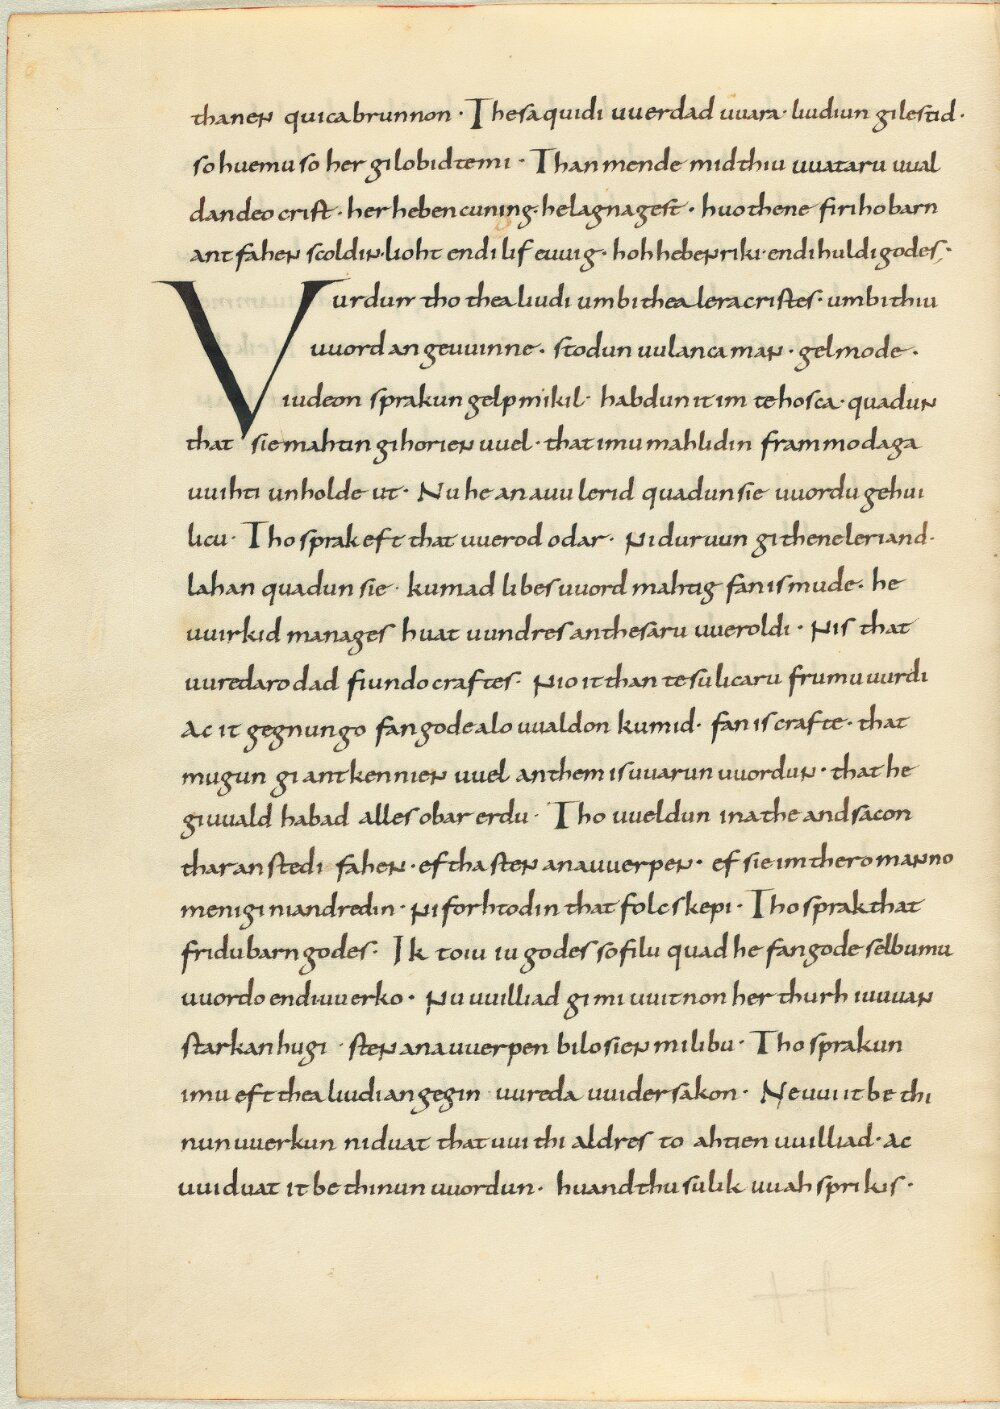 thanen quicabrunnon · Thesa quidi uuerdad uuara · liudiun gilestid ·
so huemu so her gilobid temi · Than mende mid thiu uuataru uual
dandeo crist · her hebencuning · helagna gest · huo thene firiho barn
antfahen scoldin · lioht endi lif euuig · hoh hebenriki · endi huldi godes ;
Vurdun tho thea liudi umbi thea lera cristes · umbi thiu
uuord an geuuinne · stodun uulanca man · gelmode ·
iudeon sprakun gelp mikil · habdun it im te hosca · quadun
that sie mahtin gihorien uuel · that imu mahlidin fram modaga
uuihti unholde ut · Nu he an auu lerid quadun sie uuordu gehui
licu · Tho sprak eft that uuerod odar · Ni duruun gi thene leriand ·
lahan quadun sie · kumad libes uuord mahtig fan is mude · he
uuirkid manages huat uundres an thesaru uueroldi · Nis that
uuredaro dad fiundo craftes · Nio it than te sulicaru frumu uurdi
Ac it gegnungo fan gode alouualdon kumid · fan is crafte · that
mugun gi antkennien uuel an them is uuarun uuordun · that he
giuuald habad alles obar erdu · Tho uueldun ina the andsacon
thar an stedi fahen · eftha sten ana uuerpen · ef sie im thero manno
menigi ni andredin · Ni forhtodin that folcskepi · Tho sprak that
fridubarn godes · Ik toiu iu godes so filu quad he fan gode selbumu
uuordo endi uuerko · Nu uuilliad gi mi uuitnon her thurh iuuuan
starkan hugi · sten ana uuerpen bilosien mi libu · Tho sprakun
imu eft thea liudi angegin uureda uuidersakon · Ne uui it be thi
nun uuerkun ni duat that uui thi aldres to ahtien uuilliad · ac
uui duat it be thinun uuordun · huand thu sulik uuah sprikis ·